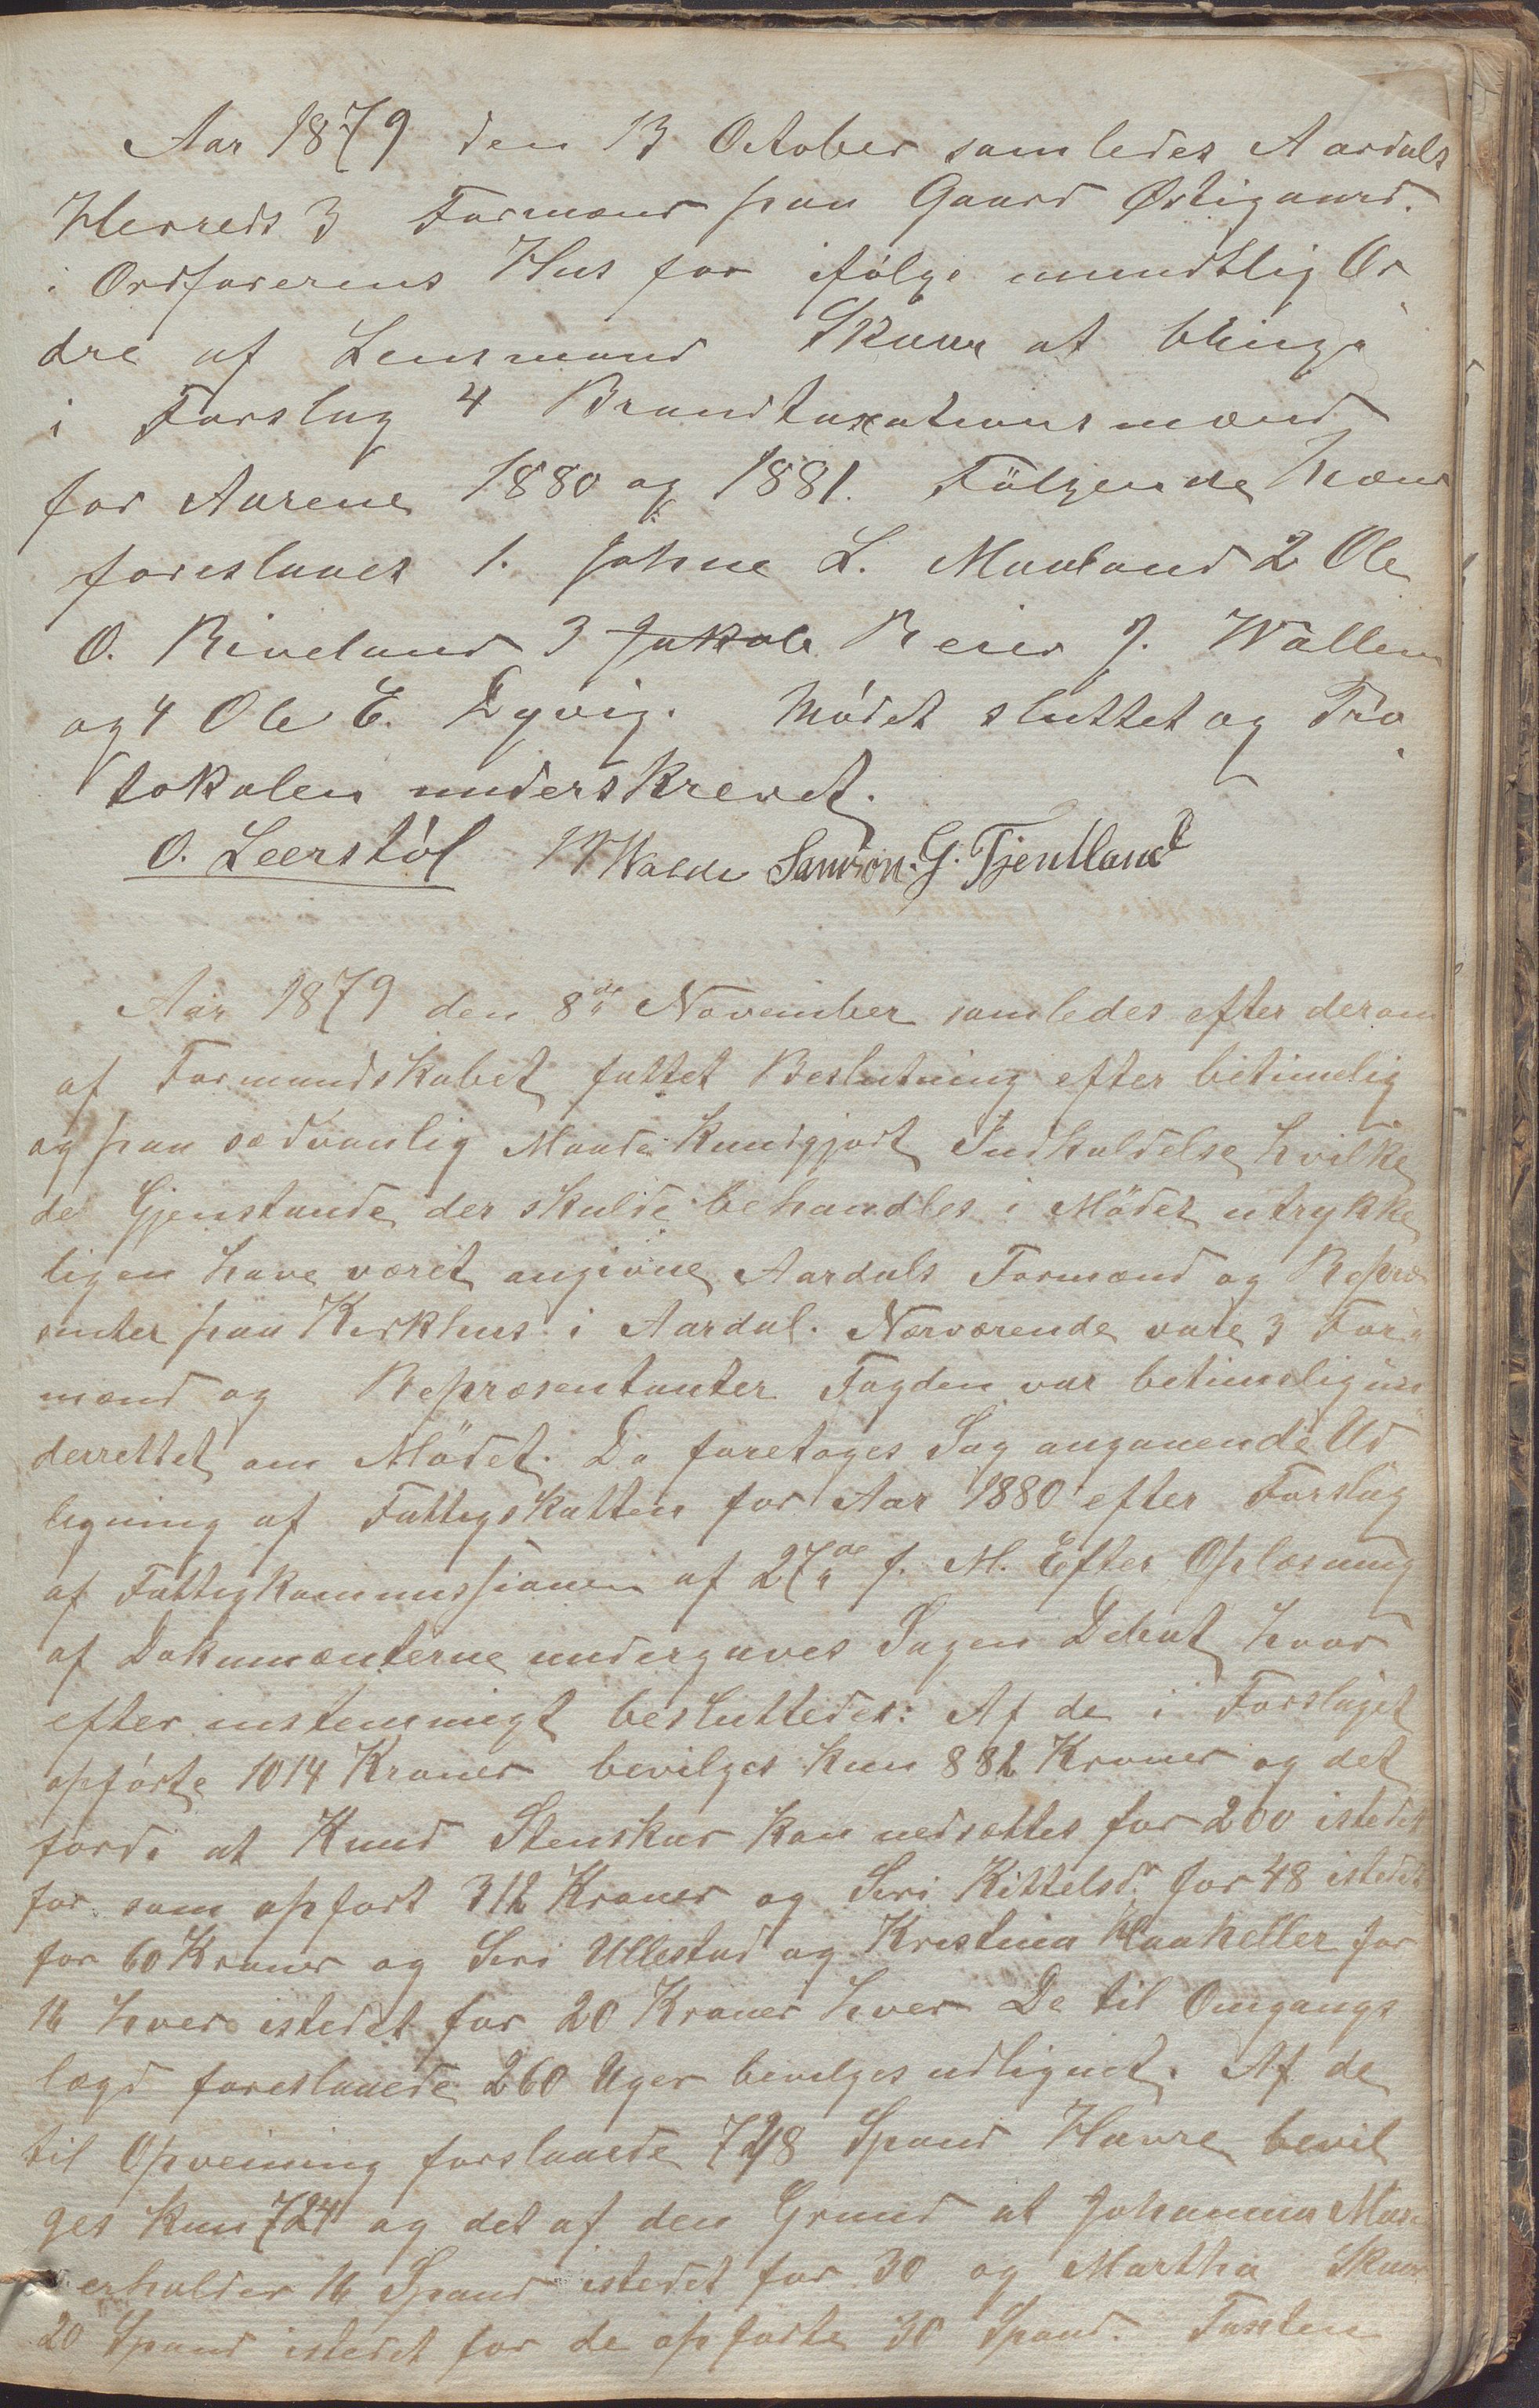 Aar 1879 den 13 October samledes Aardals
Herreds 3 Formænd paa Gaard Østigaard.
i Ordførerens Hus for ifølge mundtlig Or
dre af Lensmand Skaar at bringe
i Forslag 4 Brandtaxationsmænd
for Aarene 1880 og 1881. Følgende Mænd
foreslaaes 1. Johne L. Maaland 2 Ole
O. Riveland 3 Jakob Reier J. Wallem
og 4 Ole E. Dyvig. Mødet sluttet og Pro
tokolen underskrevet.
O. Leerstøl Walde Samson. G. Tjentland
Aar 1879 den 8de November samledes efter derom
af Formandskabet fattet Beslutning efter betimelig
og paa sædvanlig Maade kundgjort Indkaldelse hvilke
de Gjenstande der skulde behandles i Mødet utrykke
ligen have været angivne Aardals Formænd og Repræ
senter paa Kirkhus i Aardal. Nærværende vare 3 For
mænd og Repræsentanter Fogden var betimelig un
derrettet om Mødet. Da foretoges Sag angaaende Ud
ligning af Fattigskatten for Aar 1880 efter Forslag
af Fattigkommissionen af 27de f. M. Efter Oplæsning
af Dokumænterne undergaves Sagen Debat hvor
efter enstemmigt besluttedes: Af de i Forslaget
opførte 1014 Kroner bevilges kun 882 Kroner og det
fordi at Knud Stenskar kan nedsættes for 200 istedet
for som opført 312 Kroner og Siri Kittelsdr for 48 istedet
for 60 Kroner og Siri Ullestad og Kristina Haaheller for
16 hver istedet for 20 Kroner hver De til Omgangs
lægd foreslaaede 260 Uger bevilges udlignet. Af de
til Opveining forslaaede 748 Spand Havre bevil
ges kun 724 og det af den Grund at Johanna
erholder 16 Spand istedet for 30 og Martha Skaar
20 Spand istedet for de opførte 30 Spand. Taxten